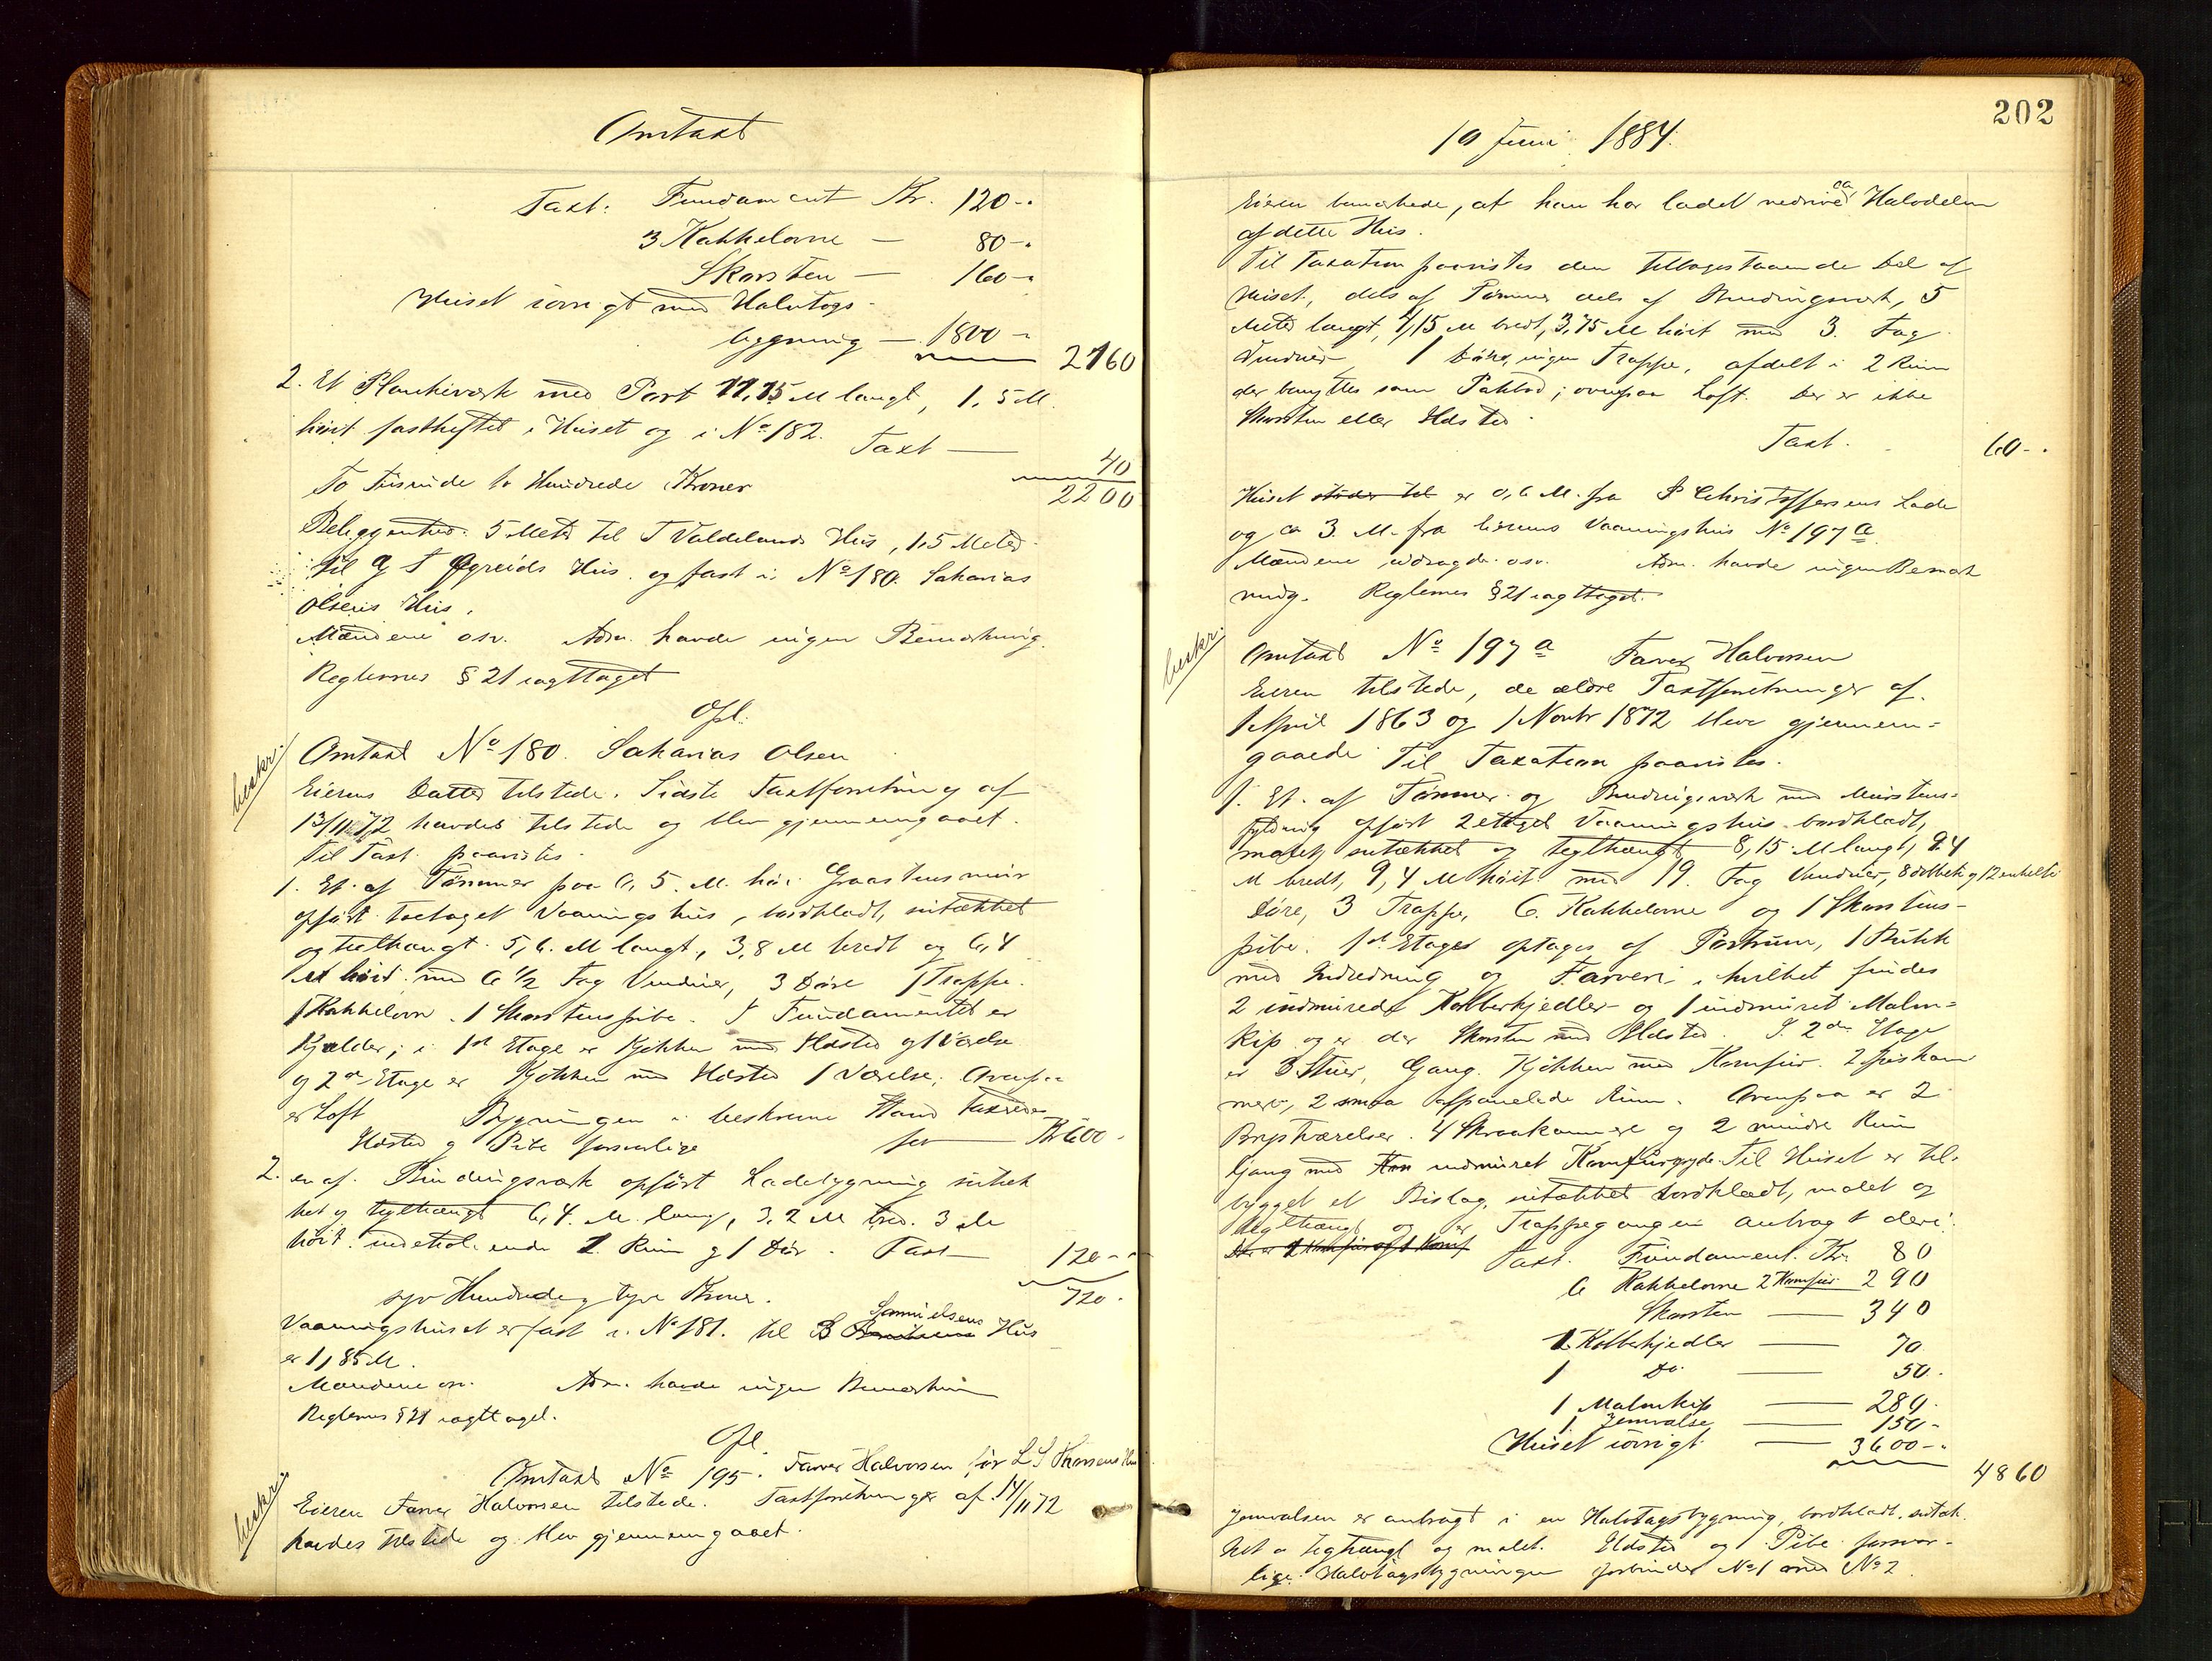 Omtaxt
Taxt: Fundament Kr. 120 -
3 Kakkelovne — 80 -
Skorsten — 160 -
Huset iøvrigt med Halvtags-
bygning — 1800 -
2160
2. Et Plankeværk med Port 11,15 M langt, 1,5 M.
høit fastheftet i Huset og i No 182.
Taxt — 40
To Tusinde to Hundrede Kroner 2200
Beliggenhed: 5 Meter til T Valdelands Hus, 1,5 Meter
til G T Øgreids Hus og fast i No 180 Sakarias
Olsens Hus.
Mændene osv. Adm. havde ingen Bemærkning.
Reglernes § 21 iagttaget
Opl.
beskr.
Omtaxt No 180. Sakarias Olsen
Eierens Datter tilstede. Sidste Taxtforretning af
13/11 72 havdes tilstede og blev gjennemgaaet.
Til Taxt paavistes.
1. Et af Tømmer paa 0,5 M. høi Graastensmur
opført toetaget Vaaningshus, bordklædt, sutækket
og teglhængt 5,6 M langt, 3,8 M bredt og 6,4
M høit med 6 1/2 Fag Vinduer, 3 Døre 1 Trappe.
1 Kakkelovn. 1 Skorstenspibe. I Fundamentet er
Kjælder; i 1st Etage er Kjøkken med Ildsted og 1 Værelse
og 2den Etage er Kjøkken med Ildsted 1 Værelse; Ovenpaa
er Loft Bygningen i beskrevne Stand taxeredes
Ildsted og Pibe forsvarlige for — Kr 600 -
2. en af Bindingsværk opført Ladebygning sutæk
ket og teglhængt 6,4 M. lang, 3,2 M bred. 3 M
høit indeholdende 1 Rum og 1 Dør. Taxt — 120 -
syv Hundrede og tyve Kroner. 720 -
Vaaningshuset er fast i No 181. til B Samuelsens Hus
er 1,85 M.
Mændene osv. Adm. havde ingen Bemærkning
Reglernes § 21 iagttaget.
Opl.
beskr.
Omtaxt No 195. Farver Halvorsen før L S Hansens Hus
Eieren Farver Halvorsen tilstede. Taxtforretninger af 14/11 72
havdes tilstede og blev gjennemgaaet.
202
10 Juni 1884.
Eieren bemærkede, at han har ladet nedrive ca Halvdelen
af dette Hus.
Til Taxation paavistes den tilbagestaaende Del af
Huset, dels af Tømmer dels af Bindingsværk, 5
Meter langt, 4,15 M bredt, 3,75 M høit med 3 Fag
Vinduer, 1 Døre, ingen Trappe, afdelt i 2 Rum
der benyttes som Pakbod; ovenpaa Loft. Der er ikke
Skorsten eller Ildsted.
Taxt. 60 -
Huset støder til er 0,6 M. fra P Christoffersens Lade
og ca 3. M. fra Eierens Vaaningshus No 197 a.
Mændene udsagde osv. Adm. havde ingen Bemærk
ning. Reglernes § 21 iagttaget.
beskr.
Omtaxt No 197 a Farver Halvorsen
Eieren tilstede, de ældre Taxtforretninger af
1 April 1863 og 1 Novbr 1872 bleve gjennem-
gaaede Til Taxation paavistes.
1. Et af Tømmer og Bindingsværk med Murstens-
fyldning opført 2 etaget Vaaningshus bordklædt,
malet, sutækket og teglhængt 8,15 M langt, 9,4
M bredt, 9,4 M høit med 19 Fag Vinduer, 8 dobbelte og 12 enkelte
Døre, 3 Trapper, 6 Kakkelovne og 1 Skorstens-
pibe. 1st Etage optages af Portrum, 1 Butik
med Indredning og Farveri, hvilket findes
2 indmurede Kobberkjedler og 1 indmuret Malm-
kip og er der Skorsten med Ildsted. I 2den Etage
er 3 Stuer, Gang. Kjøkken med Komfur. 2 Spiskam
mere, 2 smaa afpanelede Rum. Ovenpaa er 2
Brystværelser. 4 Skraakamre og 2 mindre Rum
Gang med indmuret Komfurgryde. Til Huset er til-
bygget et Bislag, sutækket bordklædt, malet og
teglhængt og er Trappegangen anbragt deri.
Taxt. Fundament Kr. 80
6 Kakkelovne 2 Komfur 290
Skorsten — 340
1 Kobberkjedler — 70
1 Do — 50.
1 Malmkip — 280.
1 Jernvalse — 150 -
Huset iøvrigt — 3600 -
4860
Jernvalsen er anbragt i en Halvtagsbygning, bordklædt, sutæk
ket og teglhængt og malet. Ildsted og Pibe forsvar-
lige. Halvtagsbygningen forbinder No 1 med No 2.